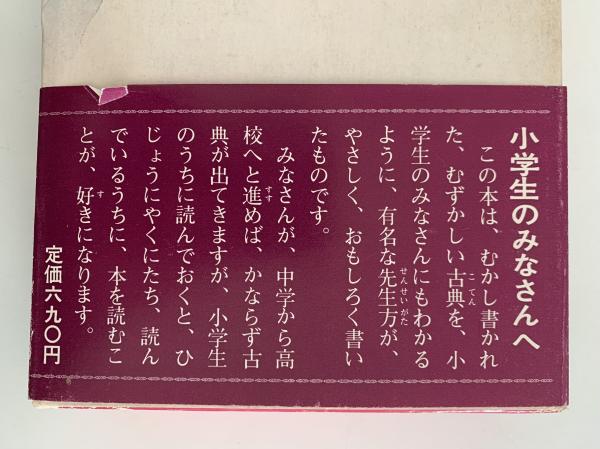 小学生のみなさんへ
この本は、むかし書かれ
た、むずかしい古典を、小
学生のみなさんにもわかる
ように、有名な先生方が、
やさしく、おもしろく書い
たものです。
みなさんが、中学から高
校へと進めば、かならず古
典が出てきますが、小学生
のうちに読んでおくと、ひ
じょうにやくにたち、読ん
でいるうちに、本を読むこ
とが、好きになります。
定価六九〇円
こてん
せんせいがた
すす
す